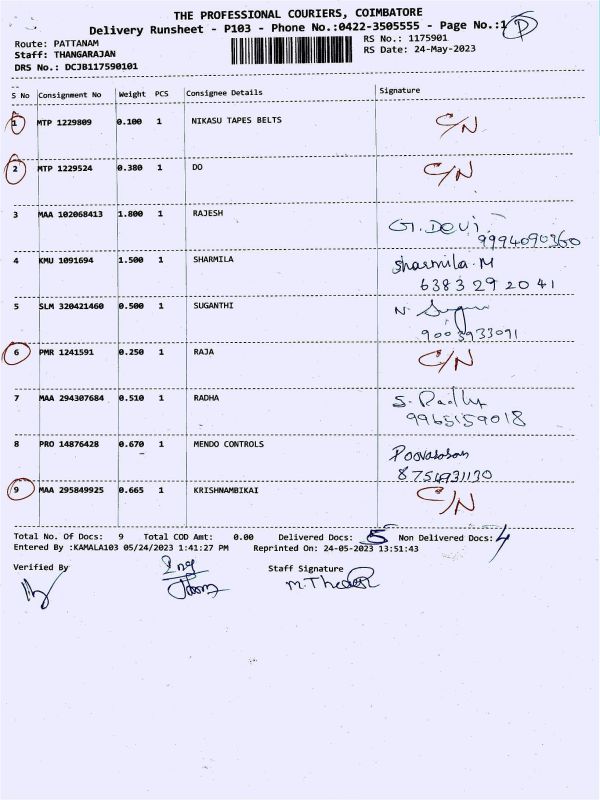 THE PROFESSIONAL COURIERS, COIMBATORE
Delivery Runsheet - P103 - Phone No.:0422-3505555 - Page No.:1 P
Route: PATTANAM
RS No.: 1175901
Staff: THANGARAJAN
RS Date: 24-May-2023
DRS No.: DCJB117590101
S No Consignment No Weight PCS Consignee Details Signature
1 MTP 1229809 0.100 1 NIKASU TAPES BELTS C/N
2 MTP 1229524 0.380 1 DO C/N
3 MAA 102068413 1.800 1 RAJESH G. DEVI
4 KMU 1091694 1.500 1 SHARMILA Sharmila. M
6383 29 20 41
5 SLM 320421460 0.500 1 SUGANTHI N.
9003933091
6 PMR 1241591 0.250 1 RAJA C/N
7 MAA 294307684 0.510 1 RADHA S. Radha
9965159018
8 PRO 14876428 0.670 1 MENDO CONTROLS Poovarasan
8754931130
9 MAA 295849925 0.665 1 KRISHNAMBIKAI C/N
Total No. Of Docs: 9 Total COD Amt: 0.00 Delivered Docs: 5 Non Delivered Docs: 4
Entered By :KAMALA103 05/24/2023 1:41:27 PM Reprinted On: 24-05-2023 13:51:43
Verified By Staff Signature